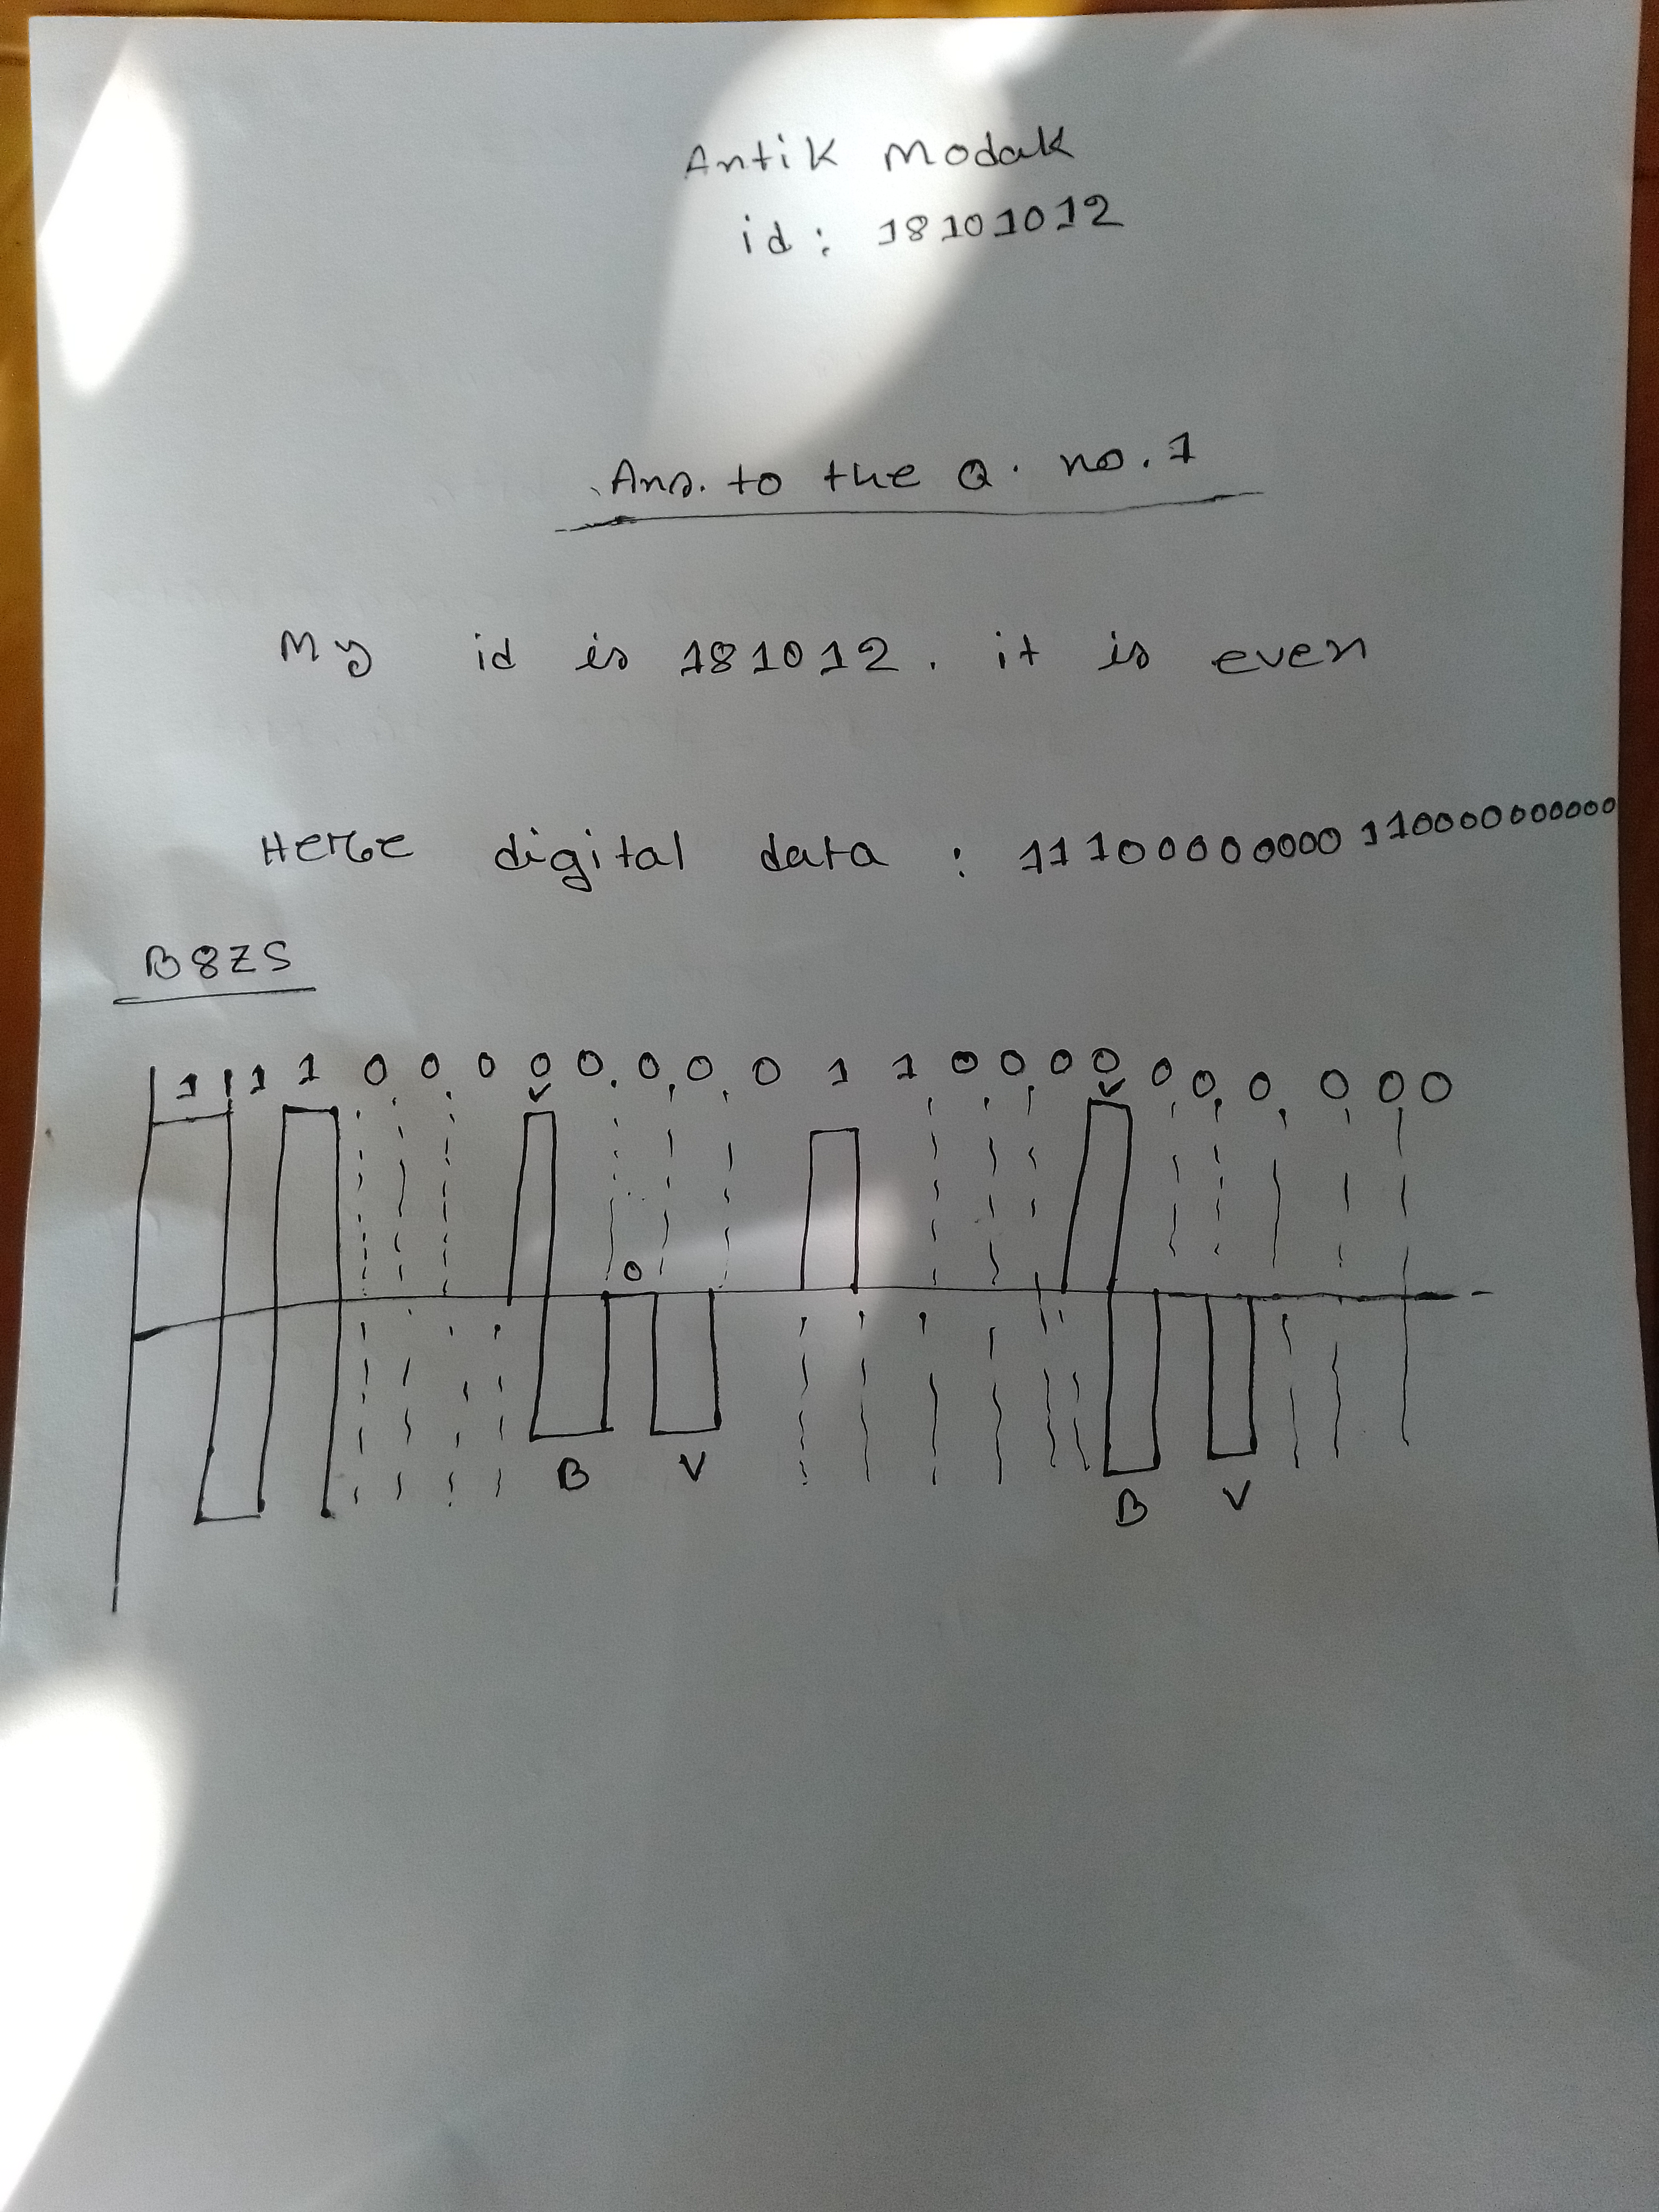 Antik Modak
id: 18101012
Ans. to the Q. no. 1
My id is 181012. it is even
Here digital data : 11100000000110000000000
B8ZS
1 1 1 0 0 0 0 0 0 0 0 1 1 0 0 0 0 0 0 0 0 0 0
V V
0
B V B V